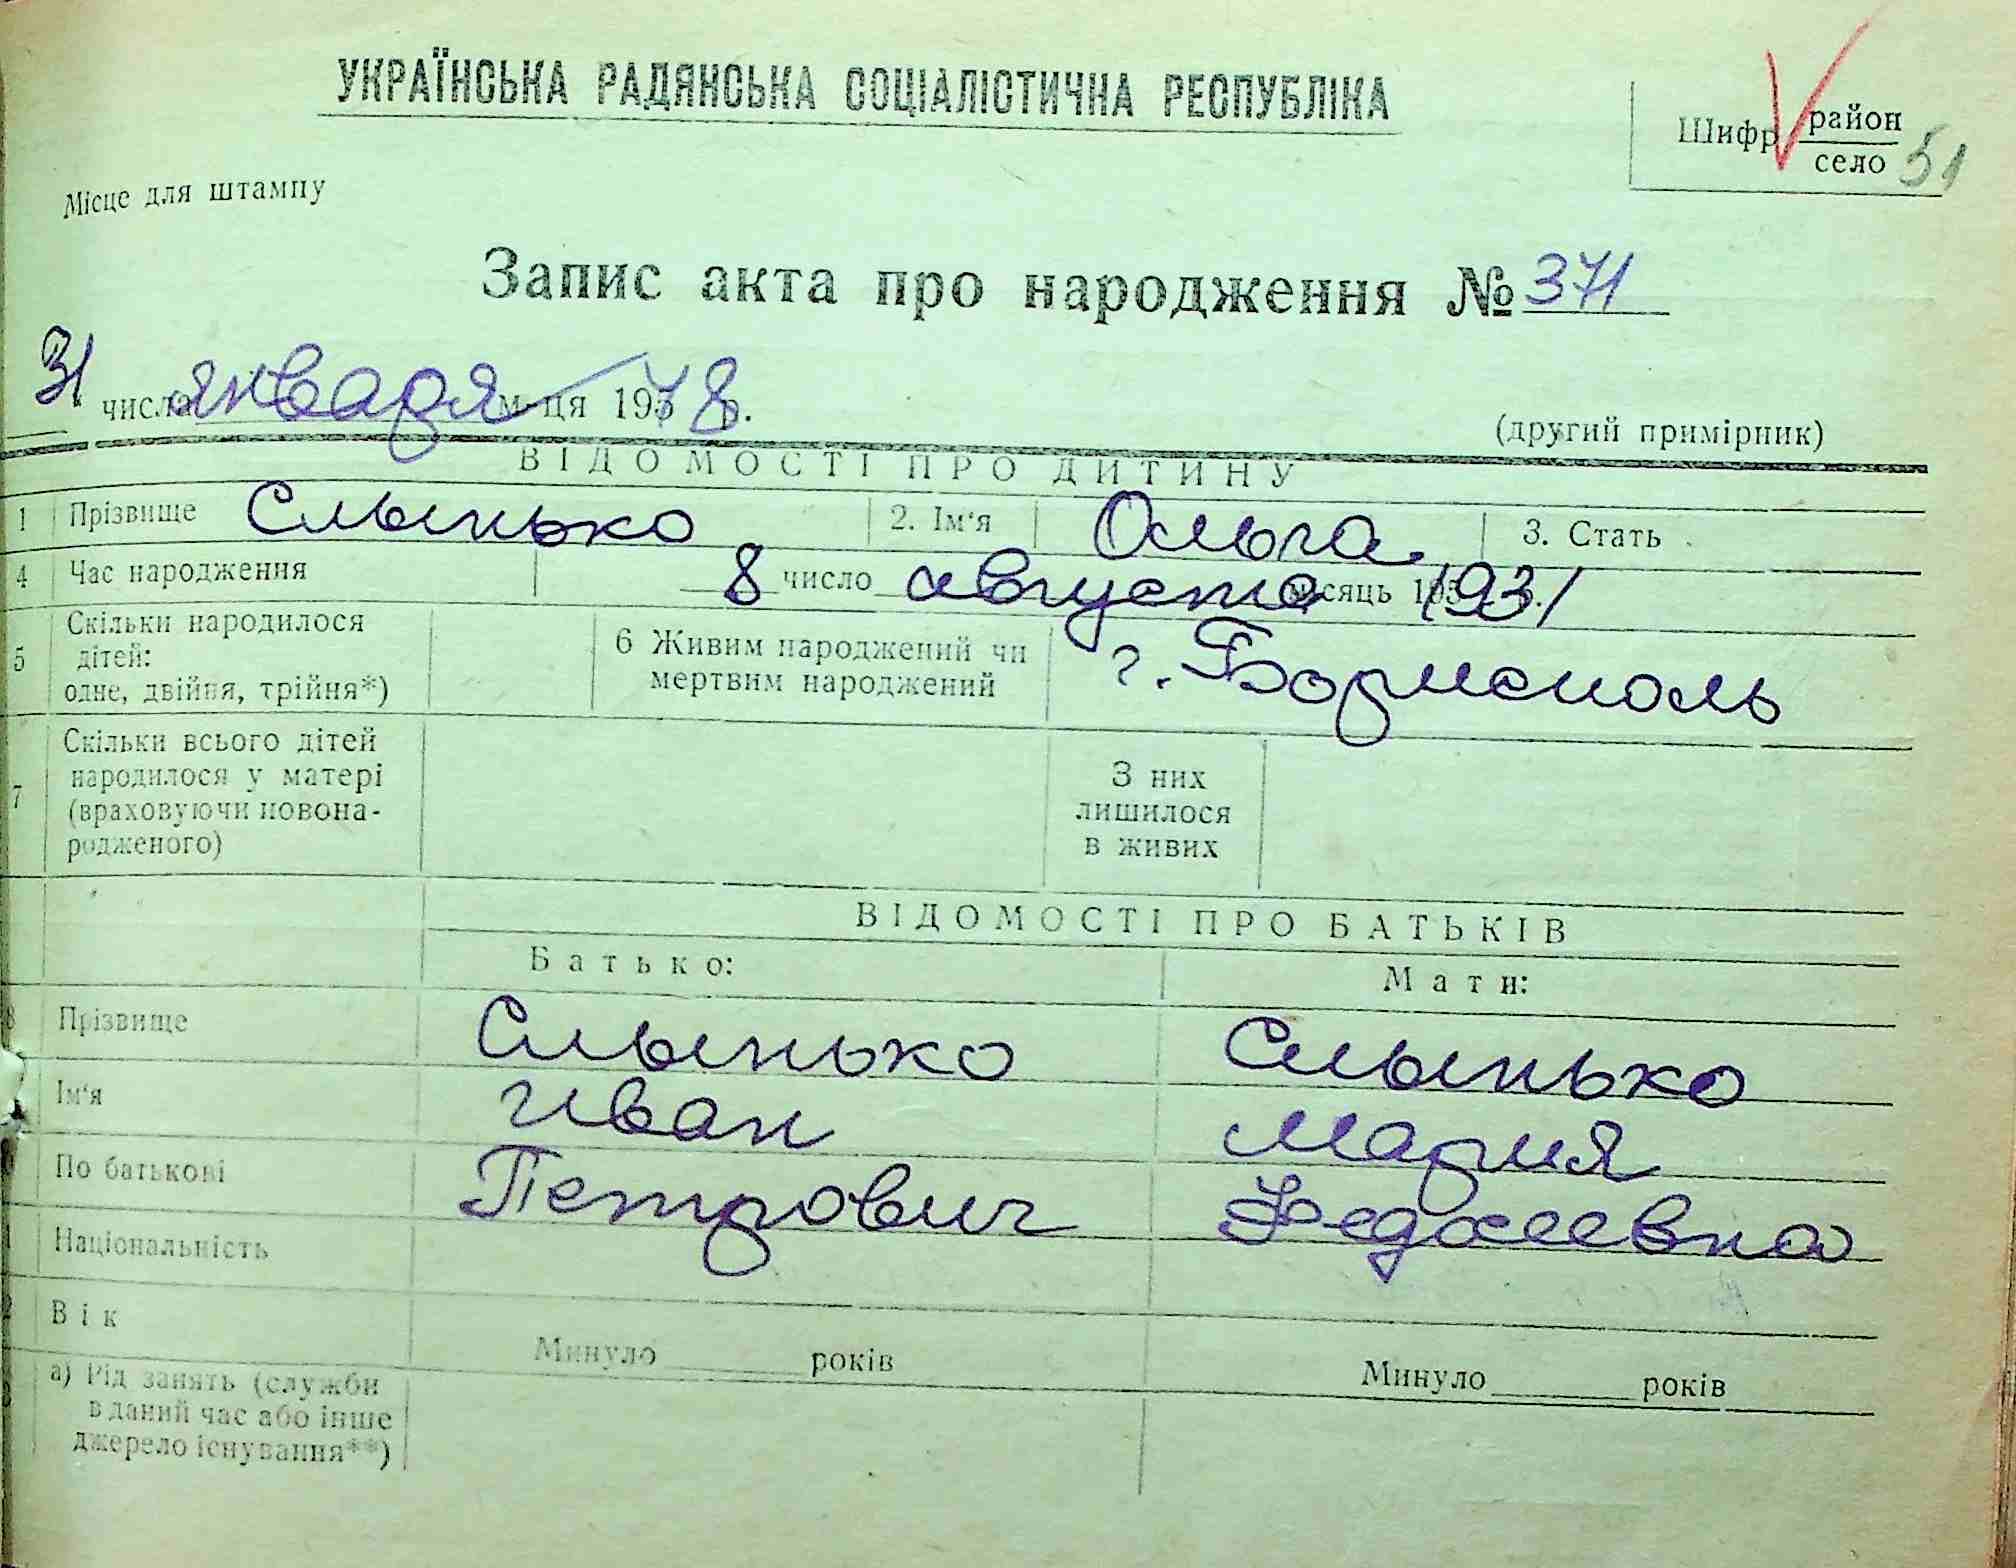 УКРАЇНСЬКА РАДЯНСЬКА СОЦІАЛІСТИЧНА РЕСПУБЛІКА
Шифр район
село 51
Місце для штампу
Запис акта про народження № 371
31 числа января м-ця 1978 р.
(другий примірник)
ВІДОМОСТІ ПРО ДИТИНУ
1 Прізвище Слынько 2. Ім'я Ольга 3. Стать
4 Час народження 8 число августа місяць 1931
5 Скільки народилося дітей: одне, двійня, трійня*) 6 Живим народжений чи мертвим народжений г. Борисполь
7 Скільки всього дітей народилося у матері (враховуючи новонародженого) З них лишилося в живих
ВІДОМОСТІ ПРО БАТЬКІВ
Батько: Мати:
8 Прізвище Слынько Слынько
Ім'я Иван Мария
По батькові Петрович Федосеевна
Національність
Вік Минуло років Минуло років
а) Рід занять (служби в даний час або інше джерело існування**)